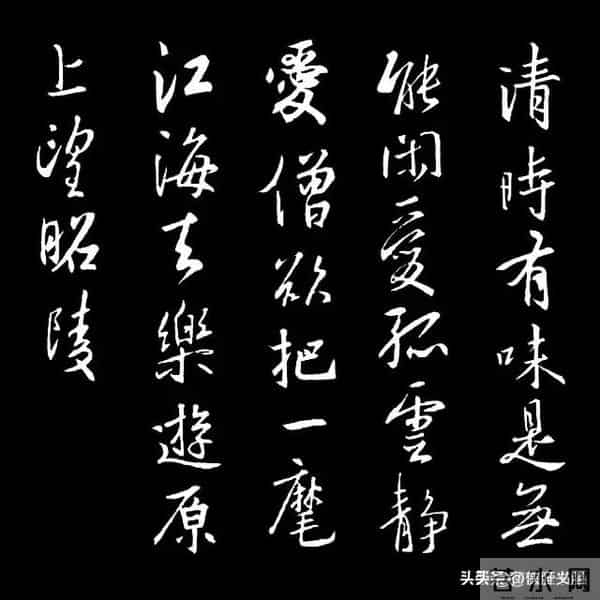 清時有味是無
能閑愛孤雲靜
愛僧欲把一麾
江海去樂遊原
上望昭陵
头条